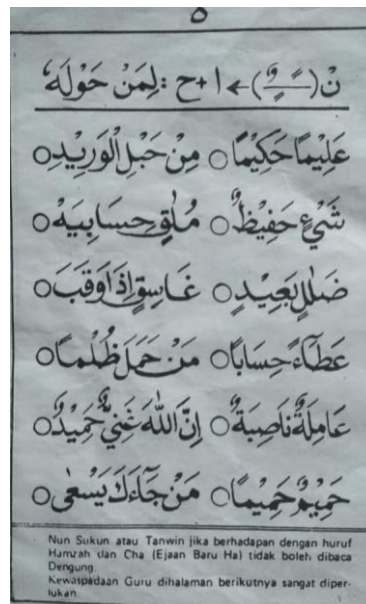 ٥
نْ (ــًــٍــٌ) ← ا + ح : لِمَنْ حَوْلَهُ
عَلِيْمًا حَكِيْمًا ○ مِنْ حَبْلِ الْوَرِيْدِ ○
شَيْءٍ حَفِيْظٌ ○ مُلٰقٍ حِسَابِيَهْ ○
ضَلٰلٍ بَعِيْدٍ ○ غَاسِقٍ اِذَا وَقَبَ ○
عَطَآءً حِسَابًا ○ مَنْ حَمَلَ ظُلْمًا ○
عَامِلَةٌ نَاصِبَةٌ ○ اِنَّ اللّٰهَ غَنِيٌّ حَمِيْدٌ ○
حَمِيْمٌ حَمِيْمًا ○ مَنْ جَآءَكَ يَسْعٰى ○
Nun Sukun atau Tanwin jika berhadapan dengan huruf
Hamzah dan Cha (Ejaan Baru Ha) tidak boleh dibaca
Dengung.
Kewaspadaan Guru dihalaman berikutnya sangat diper-
lukan.